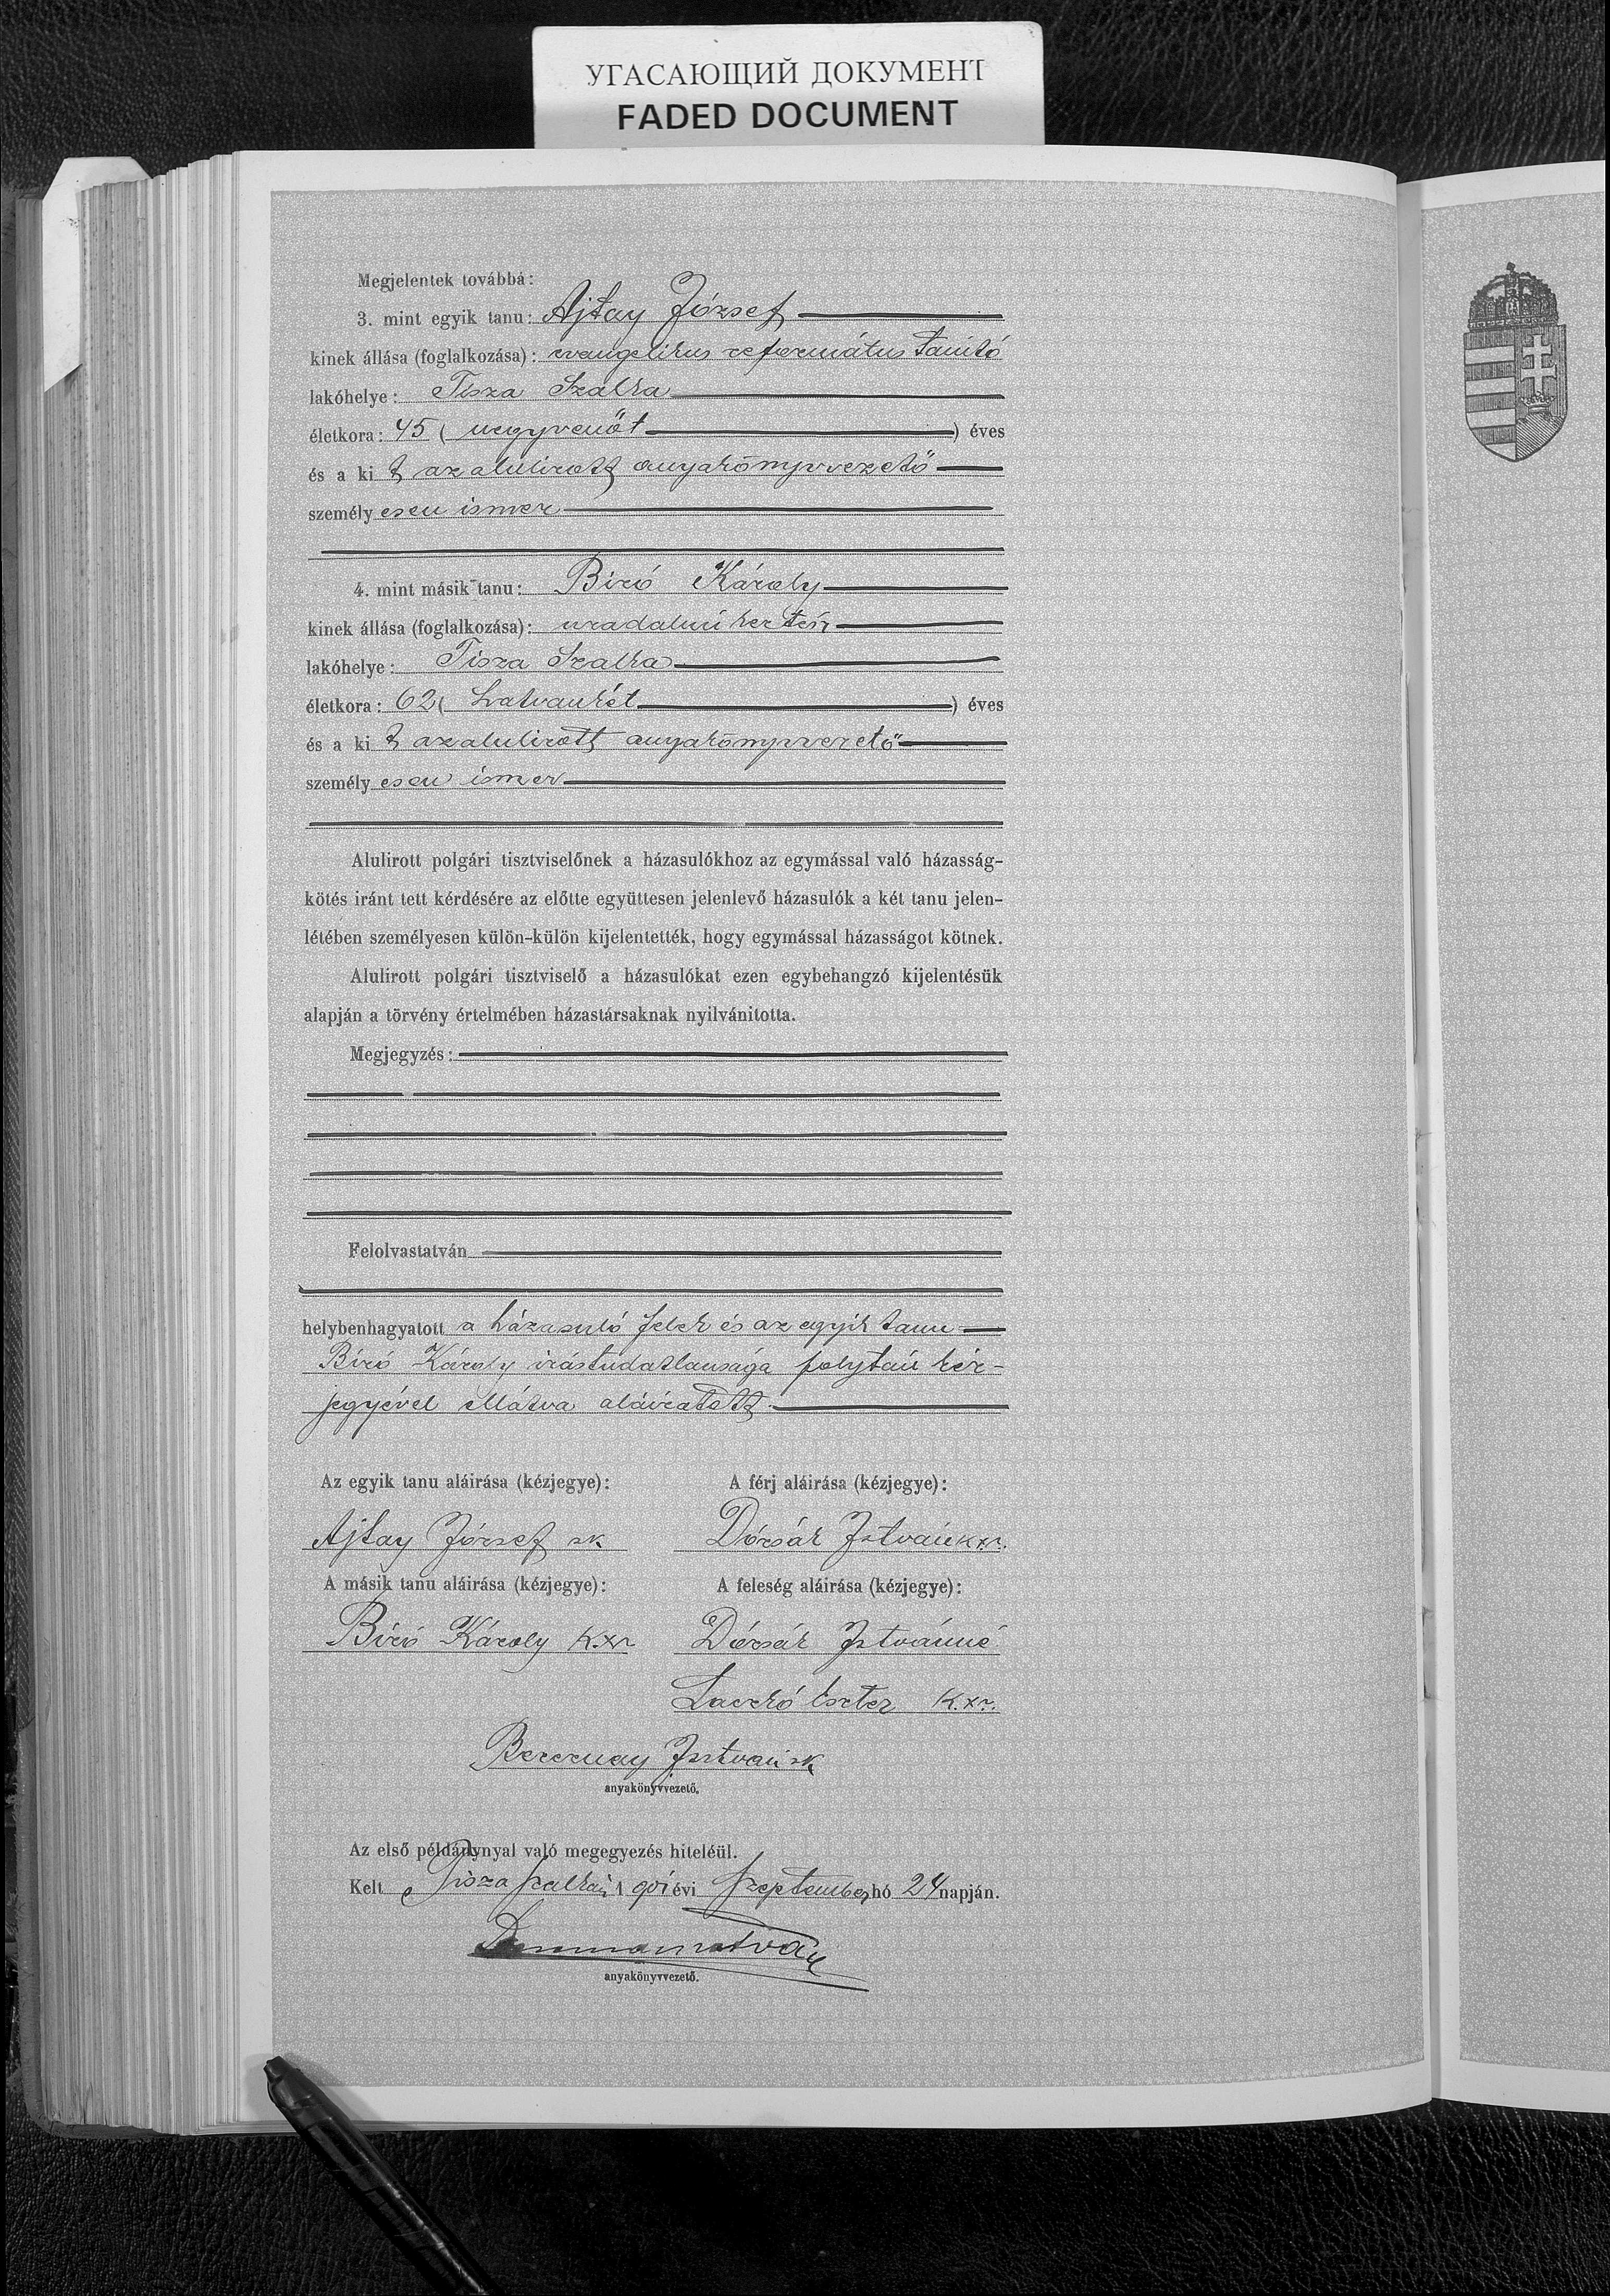 УГАСАЮЩИЙ ДОКУМЕНТ
FADED DOCUMENT
Megjelentek továbbá:
3. mint egyik tanu: Ajtay József
kinek állása (foglalkozása): evangelikus református tanító
lakóhelye: Tisza Szalka
életkora: 45 (negyvenöt) éves
és a ki t az alulirott anyakönyvvezető
személy esen ismer
4. mint másik tanu: Biró Károly
kinek állása (foglalkozása): uradalmi kertész
lakóhelye: Tisza Szalka
életkora: 62 (hatvankét) éves
és a ki t az alulirott anyakönyvvezető
személy esen ismer
Alulirott polgári tisztviselőnek a házasulókhoz az egymással való házasság-
kötés iránt tett kérdésére az előtte együttesen jelenlevő házasulók a két tanu jelen-
létében személyesen külön-külön kijelentették, hogy egymással házasságot kötnek.
Alulirott polgári tisztviselő a házasulókat ezen egybehangzó kijelentésük
alapján a törvény értelmében házastársaknak nyilvánitotta.
Megjegyzés:
Felolvastatván
helybenhagyatott a házasuló felek és az egyik tanu
Biró Károly irástudatlansága folytán kéz-
jegyével ellátva aláiratott
Az egyik tanu aláirása (kézjegye): A férj aláirása (kézjegye):
Ajtay József sk Dócsák István k.x.v.
A másik tanu aláirása (kézjegye): A feleség aláirása (kézjegye):
Biró Károly k.x.v Dócsák Istvánné
Laczkó Eszter k.x.v.
Berecznay István sk
anyakönyvvezető.
Az első példánynyal való megegyezés hiteléül.
Kelt Tisza Szalkán 1901 évi Szeptember hó 24 napján.
anyakönyvvezető.